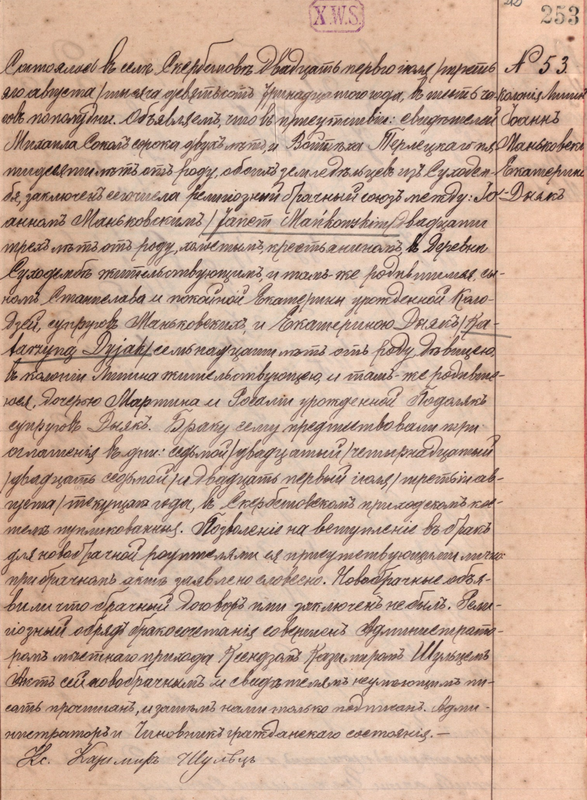 X.W.S.
253
№ 53.
колонія Литина
Іоаннъ
Маньковскі
Екатерина
Дыякъ
Состоялось въ селѣ Скербешовѣ двадцать перваго іюля /третья-
яго августа/ тысяча девятьсотъ тринадцатаго года, въ шесть ча-
совъ пополудни. Объявляемъ, что въ присутствіи: свидѣтелей
Михаила Сокола сорока двухъ лѣтъ, и Войтѣха Терлецкаго
пятидесяти лѣтъ отъ роду, обоихъ земледѣльцевъ изъ Суходемб-
бя, заключенъ сего числа религіозный брачный союзъ между: Іо-
анномъ Маньковскимъ /Janem Mańkowskim/ двадцати
трехъ лѣтъ отъ роду, холостымъ, крестьяниномъ, въ деревни
Суходембѣ жительствующимъ и тамъ-же родившимся, сы-
номъ Станислава и покойной Екатерины урожденной Коло-
дзей, супруговъ Маньковскихъ, и Екатериною Дыякъ /Ka-
tarzyną Dyjak/ семнадцати лѣтъ отъ роду, дѣвицею,
въ колоніи Литина жительствующею, и тамъ-же родивше-
юся, дочерью Мартина и Розаліи урожденной Подолякъ
супруговъ Дыякъ. Браку сему предшествовали три
оглашенія въ дни: седьмой /двадцатый/ четырнадцатый
/двадцать седьмой/ и двадцать первый іюля /третій ав-
густа/ текущаго года, въ Скербешовскомъ приходскомъ кос-
телѣ публикованныя. Позволеніе на вступленіе въ бракъ
для новобрачной родителями ея присутствующими лично
при брачномъ актѣ заявлено словесно. Новобрачные объя-
вили что брачный договоръ ими заключенъ не былъ. Рели-
гіозный обрядъ бракосочетанія совершенъ Администрато-
ромъ мѣстнаго прихода Ксендзомъ Казиміромъ Шульцемъ
Актъ сей новобрачнымъ и свидѣтелямъ неумѣющимъ пи-
сать прочитанъ, и затѣмъ нами только подписанъ. Адми-
нистраторъ и Чиновникъ гражданскаго состоянія.—
Кс. Казимиръ Шульцъ